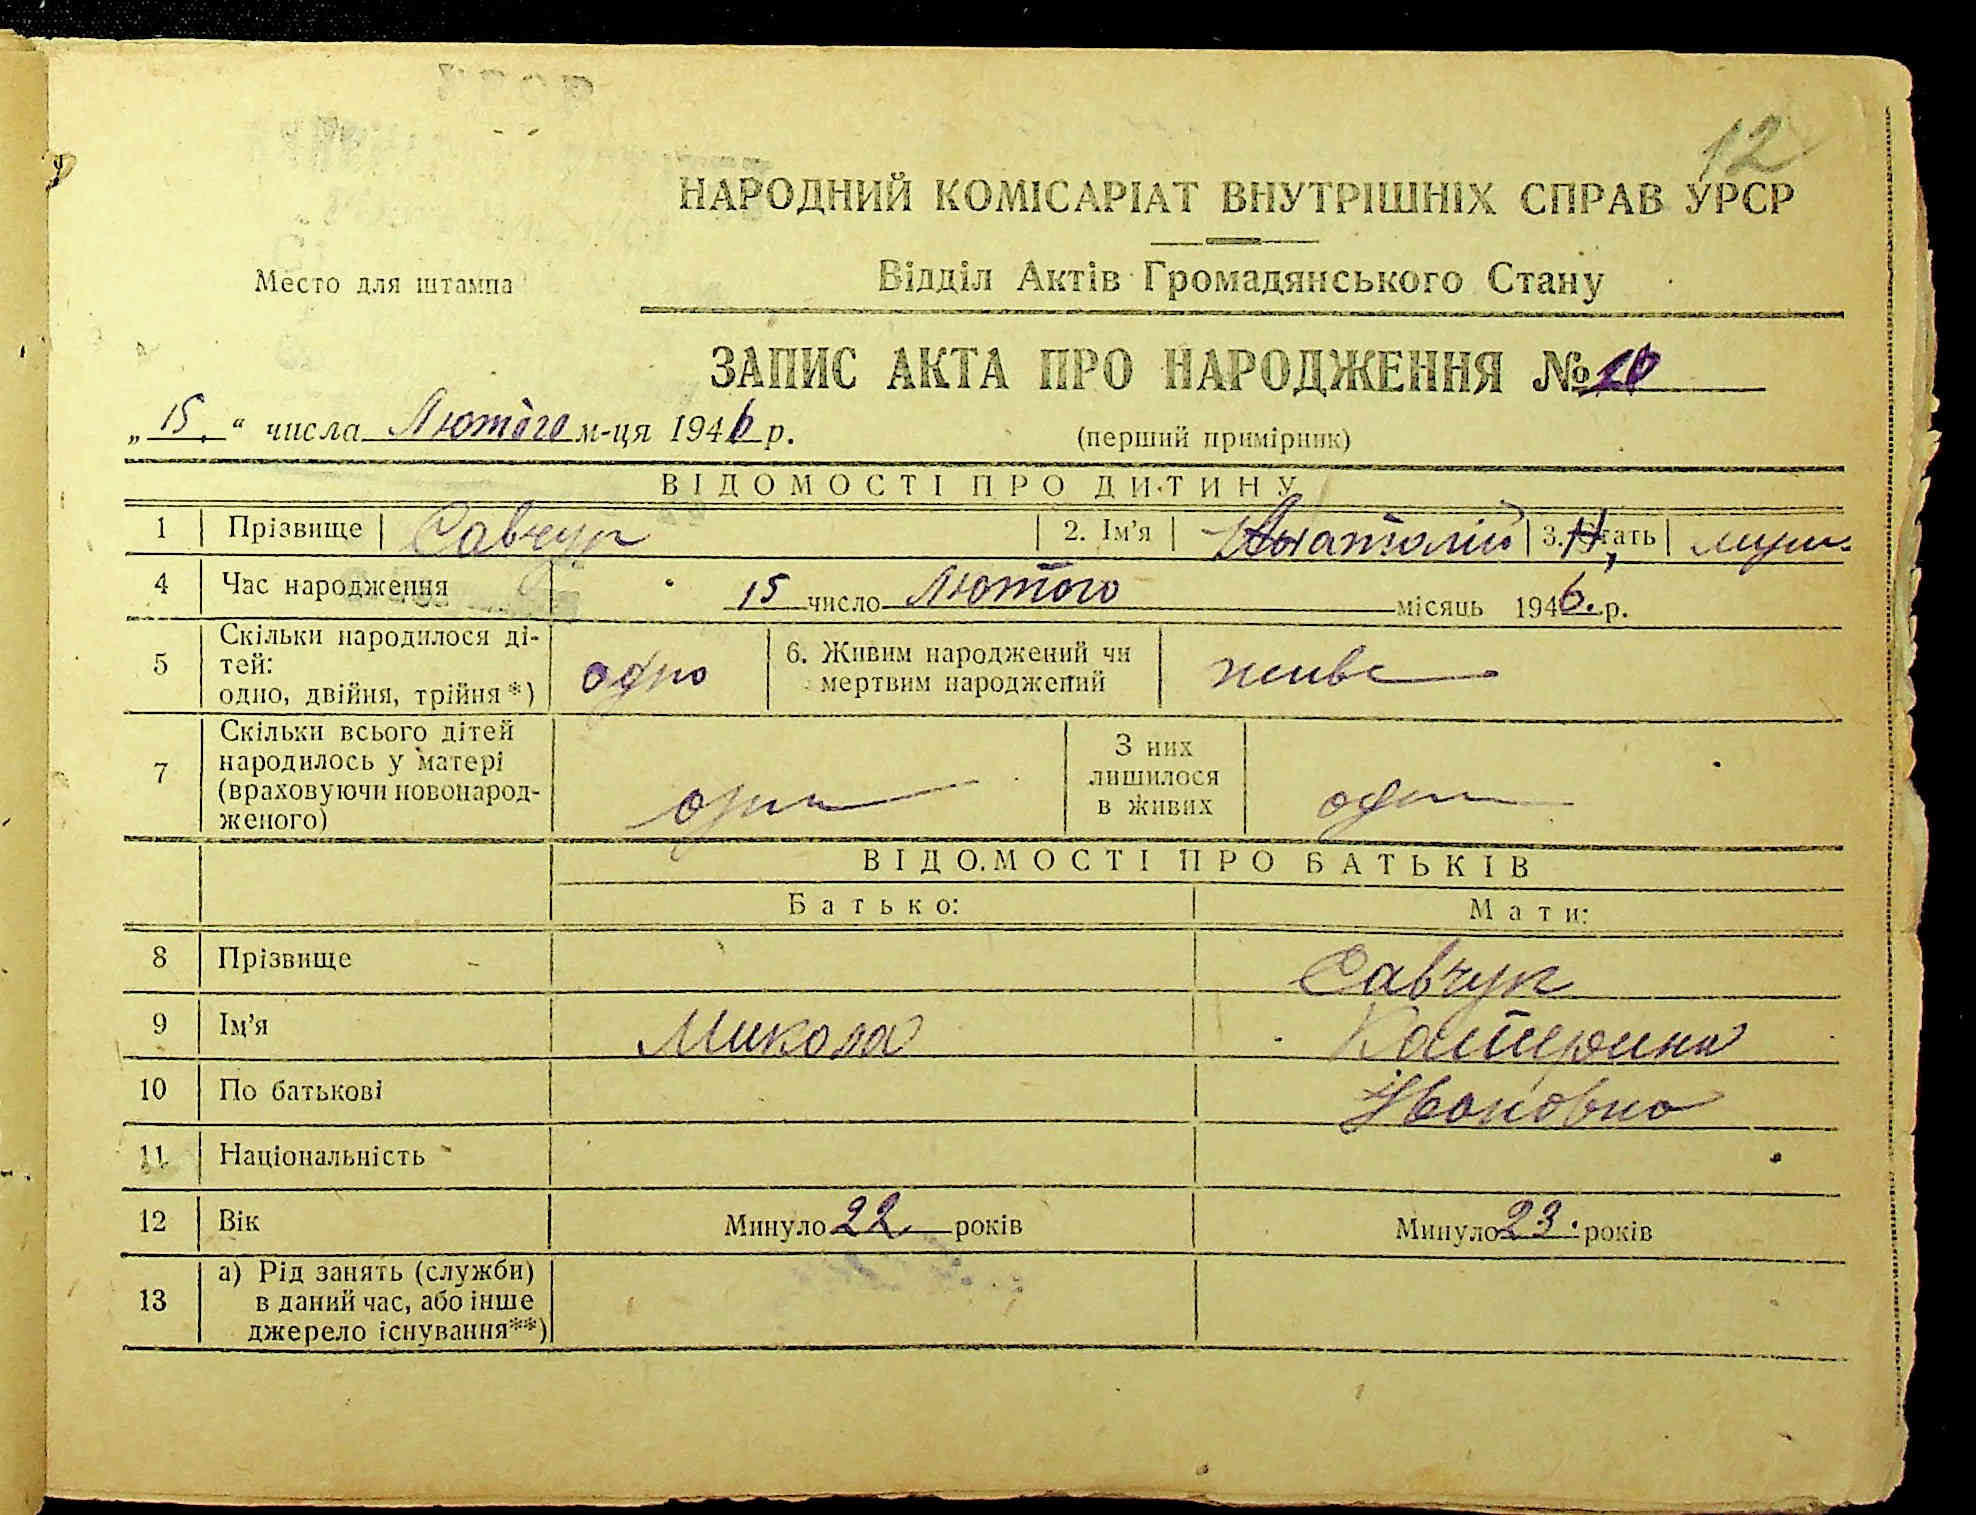 12
НАРОДНИЙ КОМІСАРІАТ ВНУТРІШНІХ СПРАВ УРСР
Место для штампа
Відділ Актів Громадянського Стану
ЗАПИС АКТА ПРО НАРОДЖЕННЯ № 10
„15.“ числа Лютого м-ця 1946 р.
(перший примірник)
ВІДОМОСТІ ПРО ДИТИНУ
1 Прізвище Савчук 2. Ім’я Анатолій Н, 3. Стать муж.
4 Час народження 15 число Лютого місяць 1946. р.
5 Скільки народилося ді-
тей:
одно, двійня, трійня*) одно 6. Живим народжений чи
мертвим народжений живе
7 Скільки всього дітей
народилось у матері
(враховуючи новонарод-
женого) одно З них
лишилося
в живих одно
ВІДОМОСТІ ПРО БАТЬКІВ
Батько: Мати:
8 Прізвище Савчук
9 Ім’я Микола Катерина
10 По батькові Івановна
11 Національність
12 Вік Минуло 22 років Минуло 23. років
13 а) Рід занять (служби)
в даний час, або інше
джерело існування**)